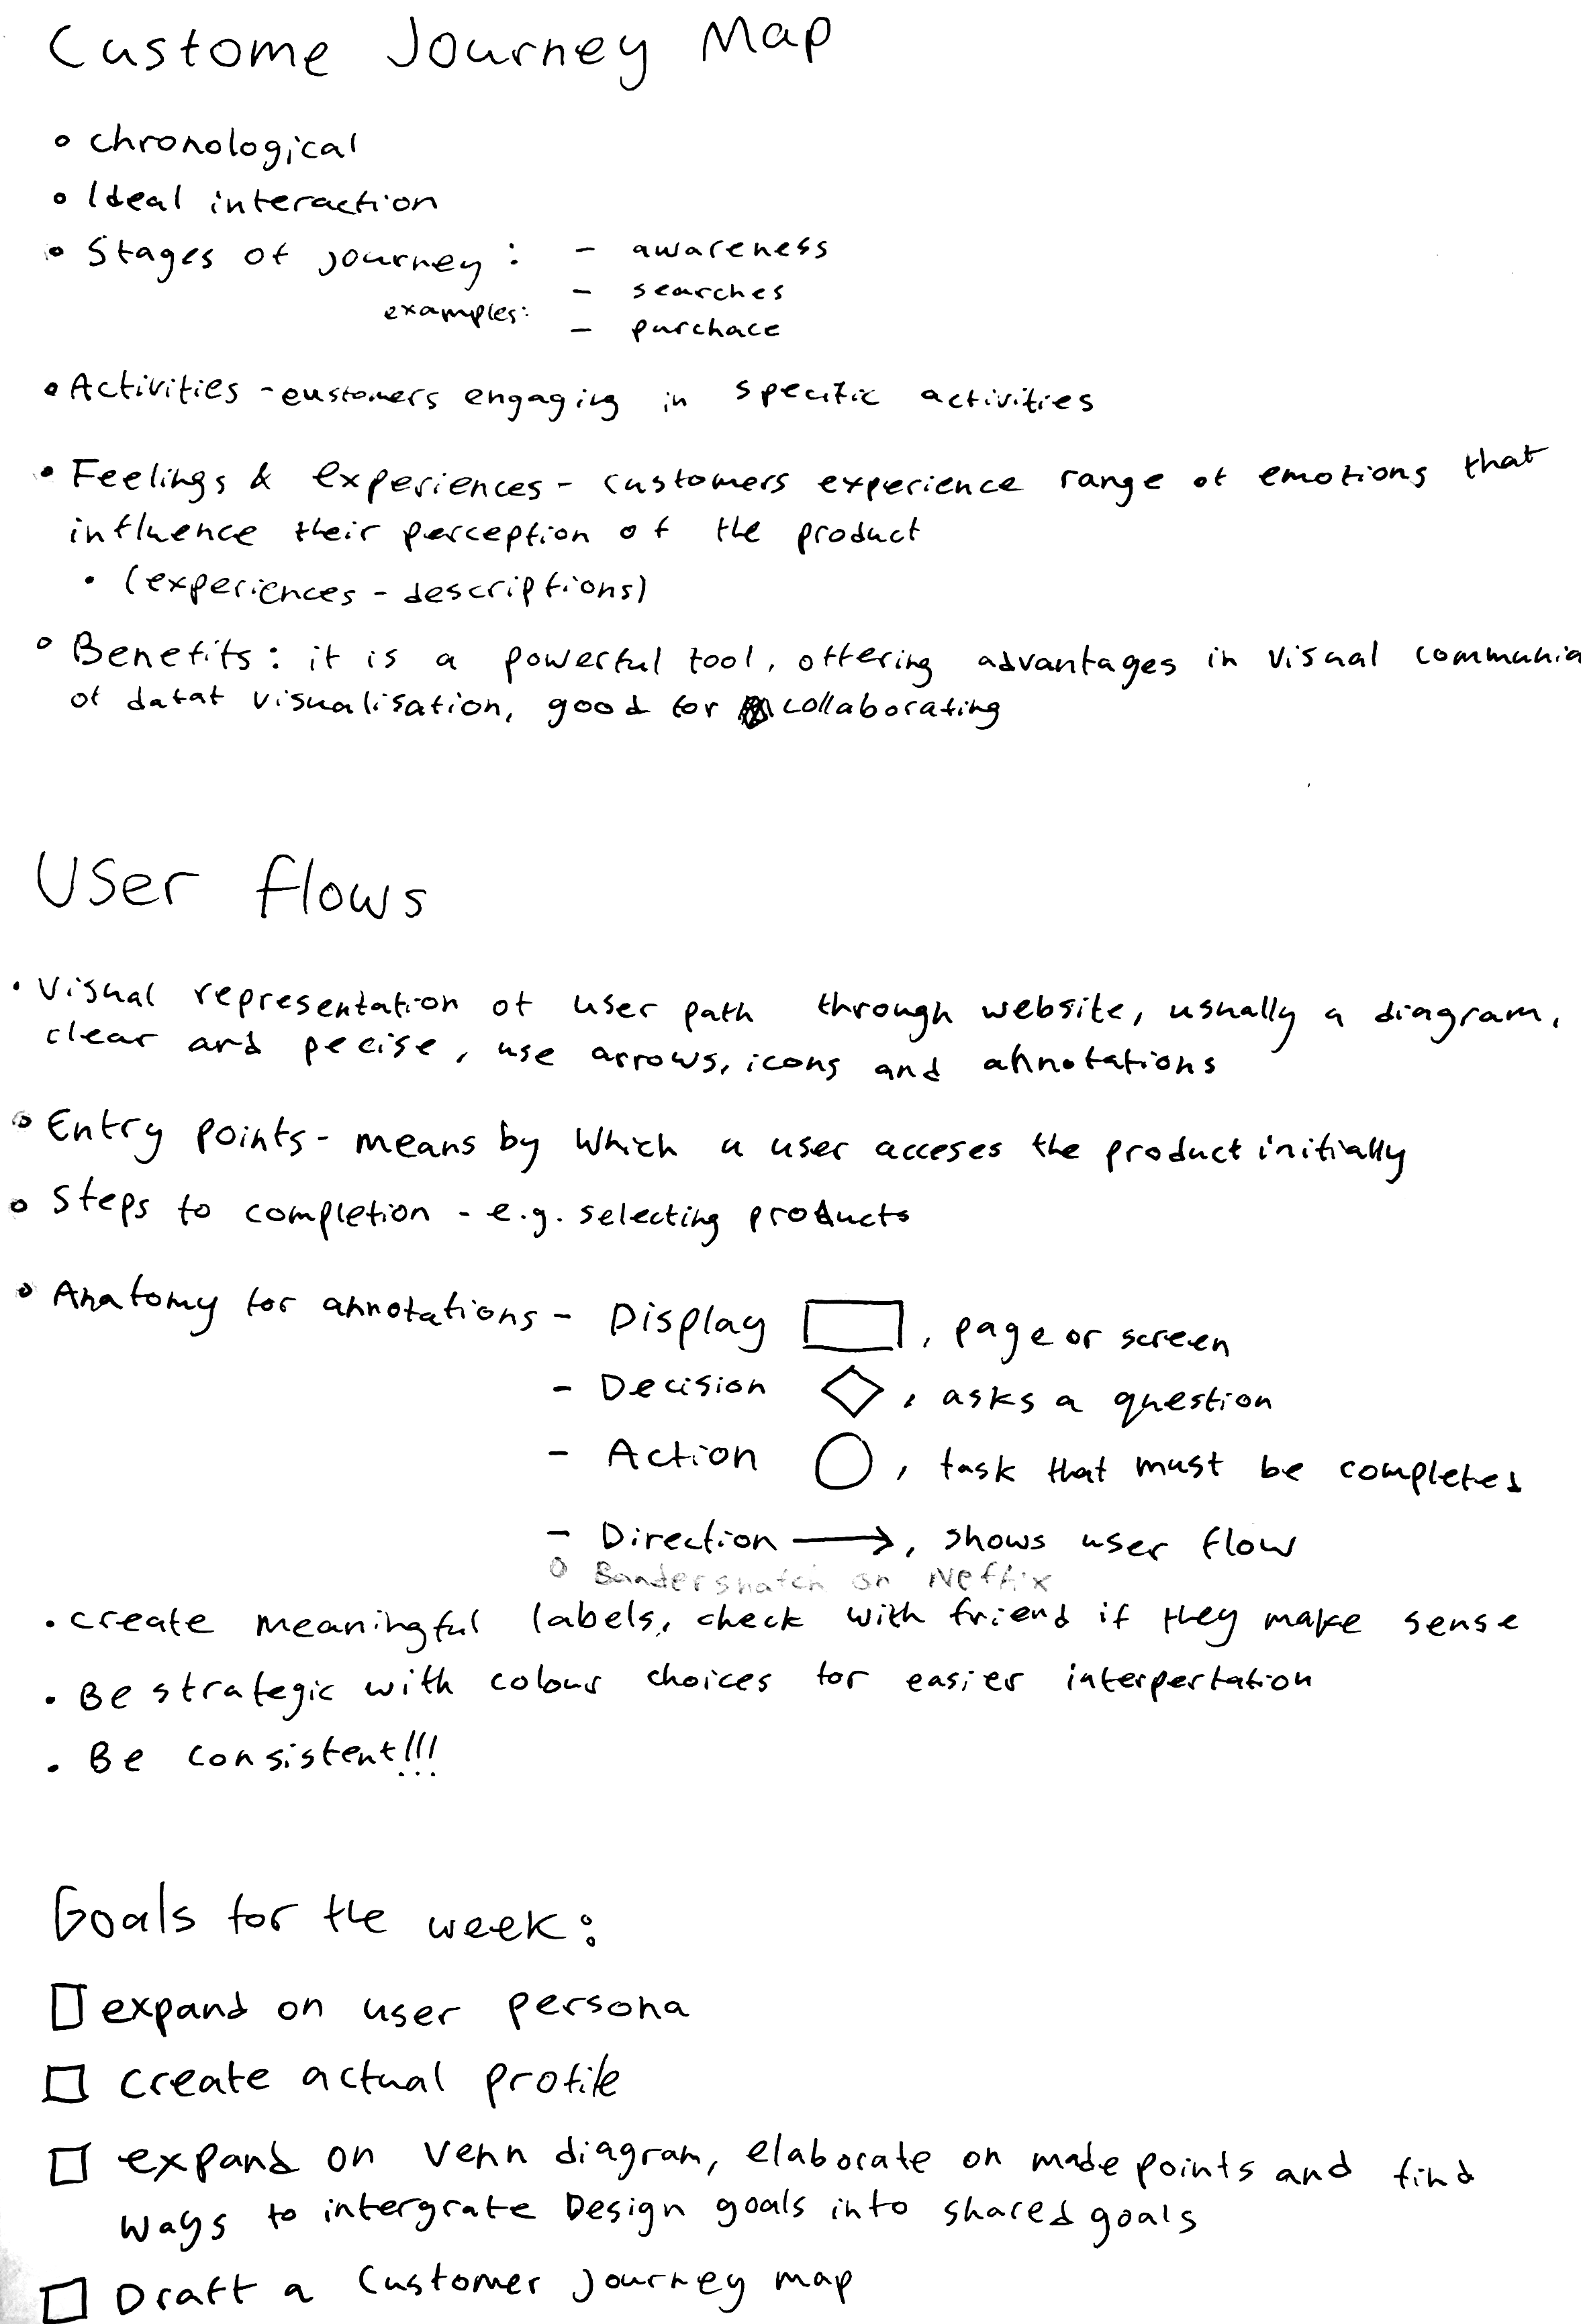 Custome Journey Map
• chronological
• Ideal interaction
• Stages of journey : - awareness
examples: - searches
- purchace
• Activities - customers engaging in specific activities
• Feelings & experiences - customers experience range of emotions that
influence their perception of the product
• (experiences - descriptions)
• Benefits: it is a powerful tool, offering advantages in visual communic
of datat visualisation, good for collaborating
User flows
• Visual representation of user path through website, usually a diagram,
clear and pecise, use arrows, icons and annotations
• Entry points - means by which a user acceses the product initially
• Steps to completion - e.g. selecting products
• Anatomy for annotations - Display , page or screen
- Decision , asks a question
- Action , task that must be completed
- Direction → , shows user flow
• Bandersnatch on Netflix
• create meaningful labels, check with friend if they make sense
• Be strategic with colour choices for easier interpertation
• Be consistent!!!
Goals for the week:
expand on user persona
create actual profile
expand on Venn diagram, elaborate on made points and find
ways to intergrate Design goals into shared goals
Draft a Customer journey map